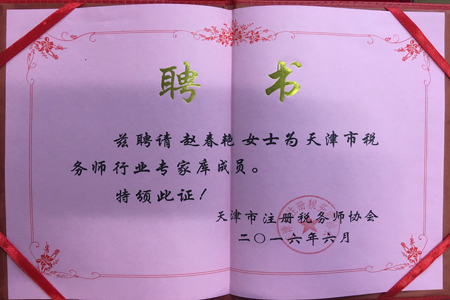 聘 书
兹聘请 赵春艳 女士为天津市税
务师行业专家库成员。
特颁此证!
天津市注册税务师协会
二〇一六年六月